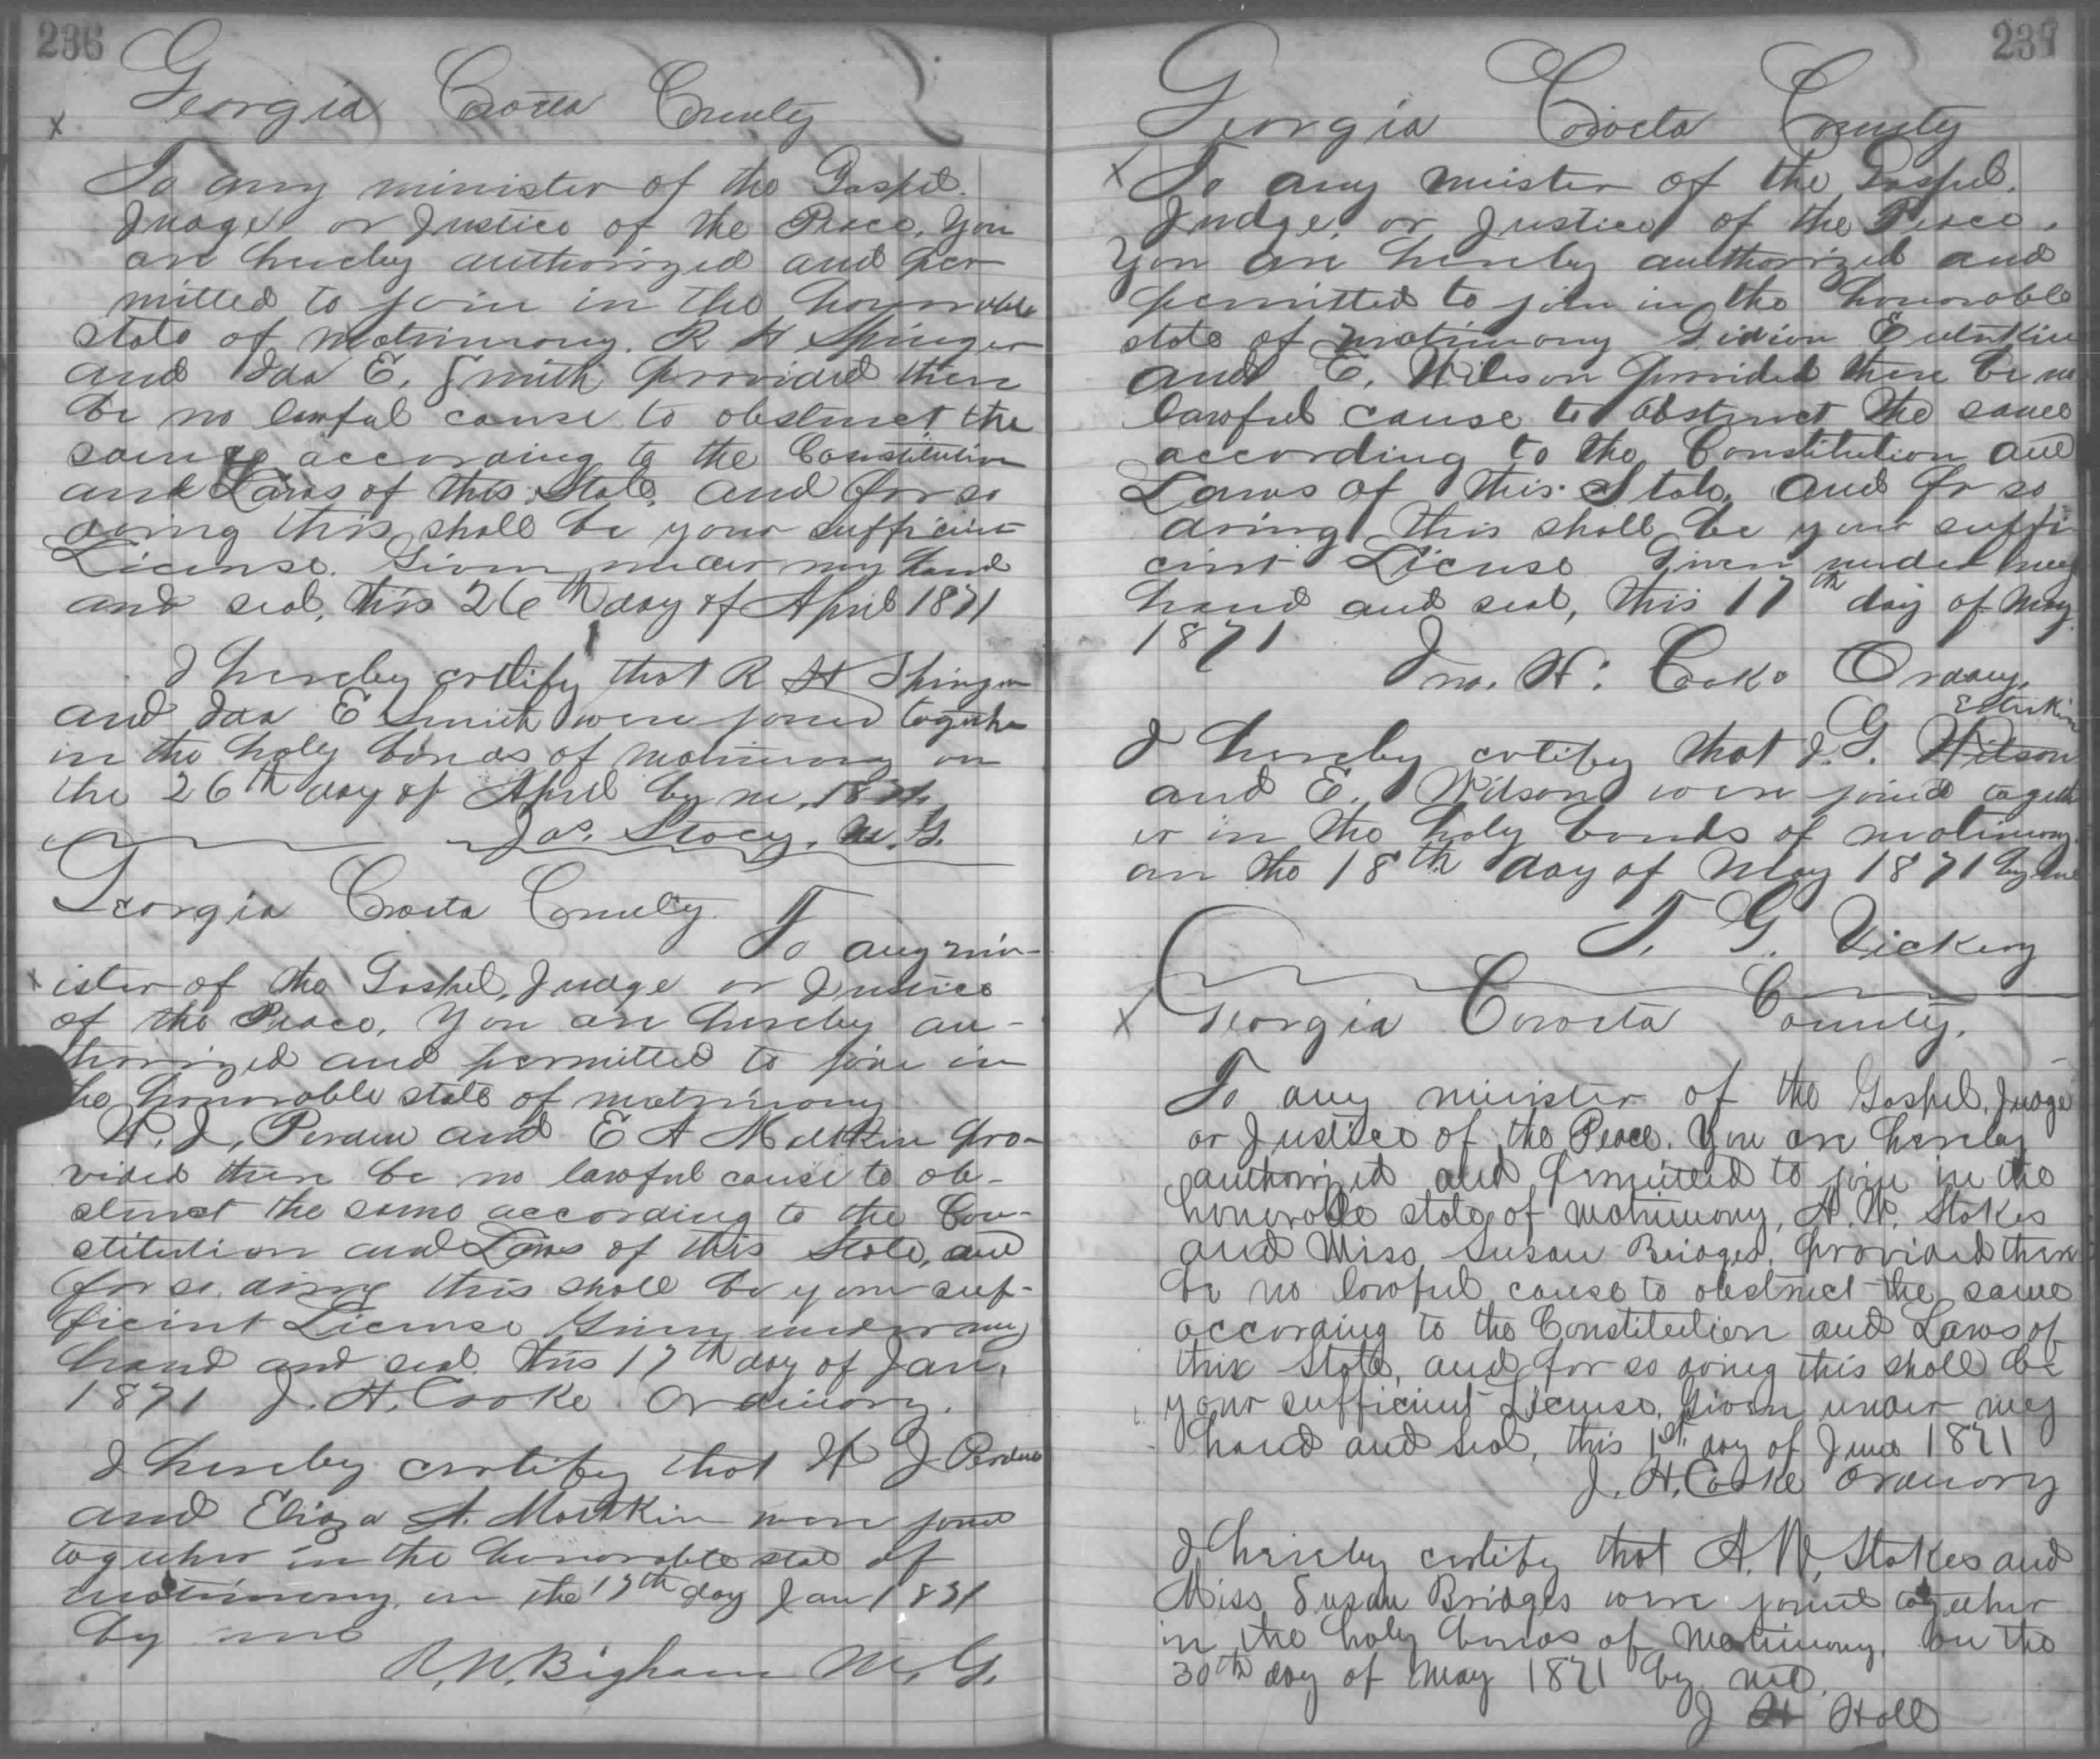 236
Georgia Coweta County
x
To any minister of the Gospel.
Judge or Justice of the Peace, You
are hereby authorized and per
mitted to join in the honorable
state of matrimony. R H Springer
and Ida E. Smith provided there
be no lawful cause to obstruct the
same according to the Constitution
and Laws of this State. and for so
doing this shall be your sufficient
License. Given under my hand
and seal, this 26th day of April 1871
I hereby certify that R H Springer
and Ida E Smith were joined together
in the holy bonds of matrimony on
the 26th day of April by me, 1871.
Jas. Stacy, M. G.
Georgia Coweta County.
To any min-
x ister of the Gospel, Judge or Justice
of the Peace, You are hereby au-
thorized and permitted to join in
the honorable state of matrimony
W. J. Perdue and E A Mattkin pro-
vided there be no lawful cause to ob-
struct the same according to the Con-
stitution and Laws of this State, and
for so doing this shall be your suf-
ficient License Given under my
hand and seal. this 17th day of Jan.
1871 J. H. Cooke Ordinary.
I hereby certify that W J Perdue
and Eliza A. Mattkin were joined
together in the honorable state of
matrimony, on the 17th day Jan 1871
by me
R. W. Bigham M. G.
237
Georgia Coweta County
x To any minister of the Gospel.
Judge, or Justice of the Peace.
You are hereby authorized and
permitted to join in the honorable
state of matrimony Gidion
and E. Wilson provided there be no
lawful cause to obstruct the same
according to the Constitution and
Laws of this State, and for so
doing this shall be your suffi
cient License Given under my
hand and seal, this 17th day of May
1871
Jno. H. Cook Ordary.
I hereby certify that J. G. Wilson
and E. Wilson were joined togeth
er in the holy bonds of matrimony.
on the 18th day of May 1871 by me
T. G. Vickery
x Georgia Coweta County.
To any minister of the Gospel, Judge
or Justice of the Peace. You are hereby
authorized and permitted to join in the
honorable state of matrimony, A. W. Stokes
and Miss Susan Bridges, provided there
be no lawful cause to obstruct the same
according to the Constitution and Laws of
this State, and for so doing this shall be
your sufficient License, Given under my
hand and seal, this 1st day of June 1871
J. H. Cooke Ordinary
I hereby certify that A. W. Stokes and
Miss Susan Bridges were joined together
in the holy bonds of Matrimony, on the
30th day of May 1871 by me.
J H Hall